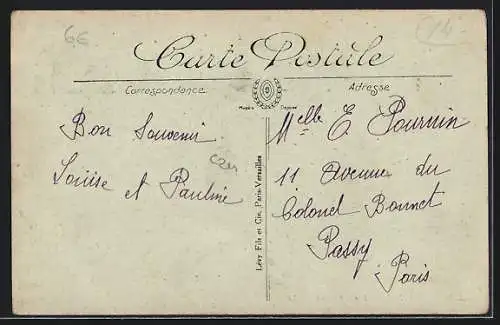 6€
Carte Postale
Correspondance
Adresse
Modèle Déposé
Bon Souvenir
Louise et Pauline
Lévy Fils et Cie, Paris-Versailles
Melle E Pournin
11 Avenue du
Colonel Bonnet
Passy
Paris